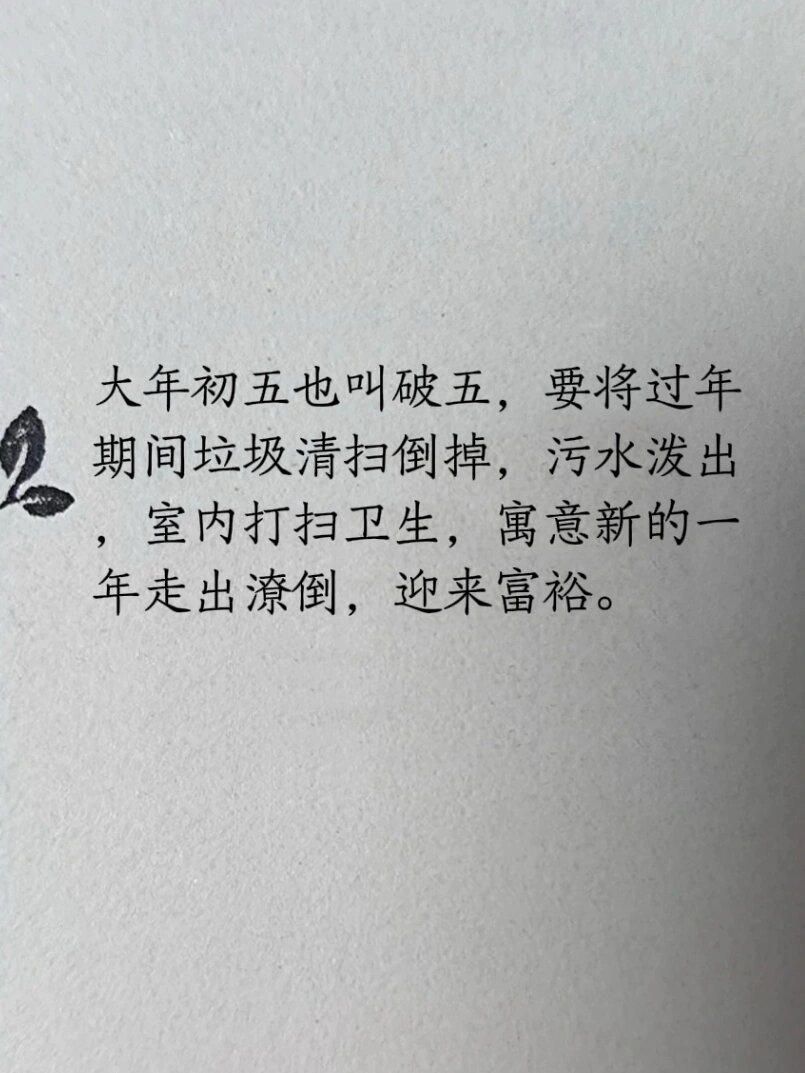 大年初五也叫破五，要将过年
期间垃圾清扫倒掉，污水泼出
，室内打扫卫生，寓意新的一
年走出潦倒，迎来富裕。